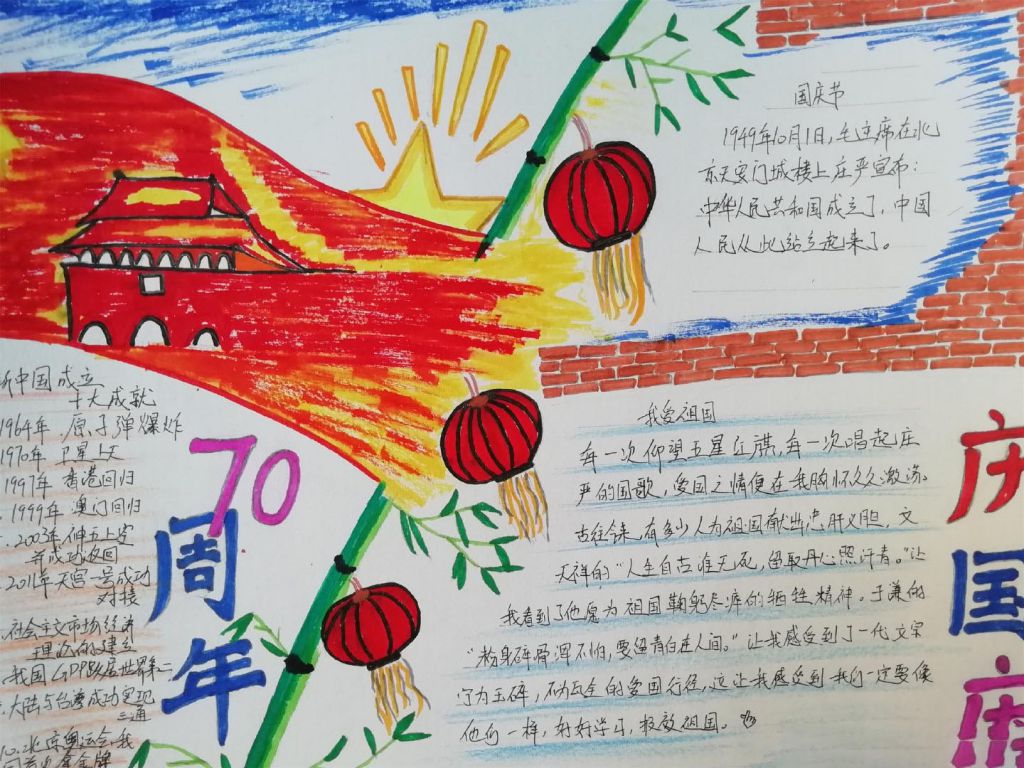 国庆节
1949年10月1日，毛主席在北
京天安门城楼上庄严宣布：
中华人民共和国成立了，中国
人民从此站立起来了。
新中国成立
十大成就
1964年 原子弹爆炸
1970年 卫星上天
1997年 香港回归
1999年 澳门回归
2003年 神五上空
并成功返回
2011年 天宫一号成功
对接
社会主义市场经济
理论的建立
我国GDP跃居世界第二
大陆与台湾成功实现
三通
10.北京奥运会,我
70
周年
我爱祖国
每一次仰望五星红旗,每一次唱起庄
严的国歌，爱国之情便在我胸怀久久激荡.
古往今来,有多少人为祖国献出忠肝义胆，文
天祥的“人生自古谁无死，留取丹心照汗青。”让
我看到了他愿为祖国鞠躬尽瘁的牺牲精神。于谦的
“粉身碎骨浑不怕，要留青白在人间。”让我感受到了一代文宗
宁为玉碎，不为瓦全的爱国行径，这让我感受到我们一定要像
他们一样，好好学习，报效祖国。
庆
国
庆